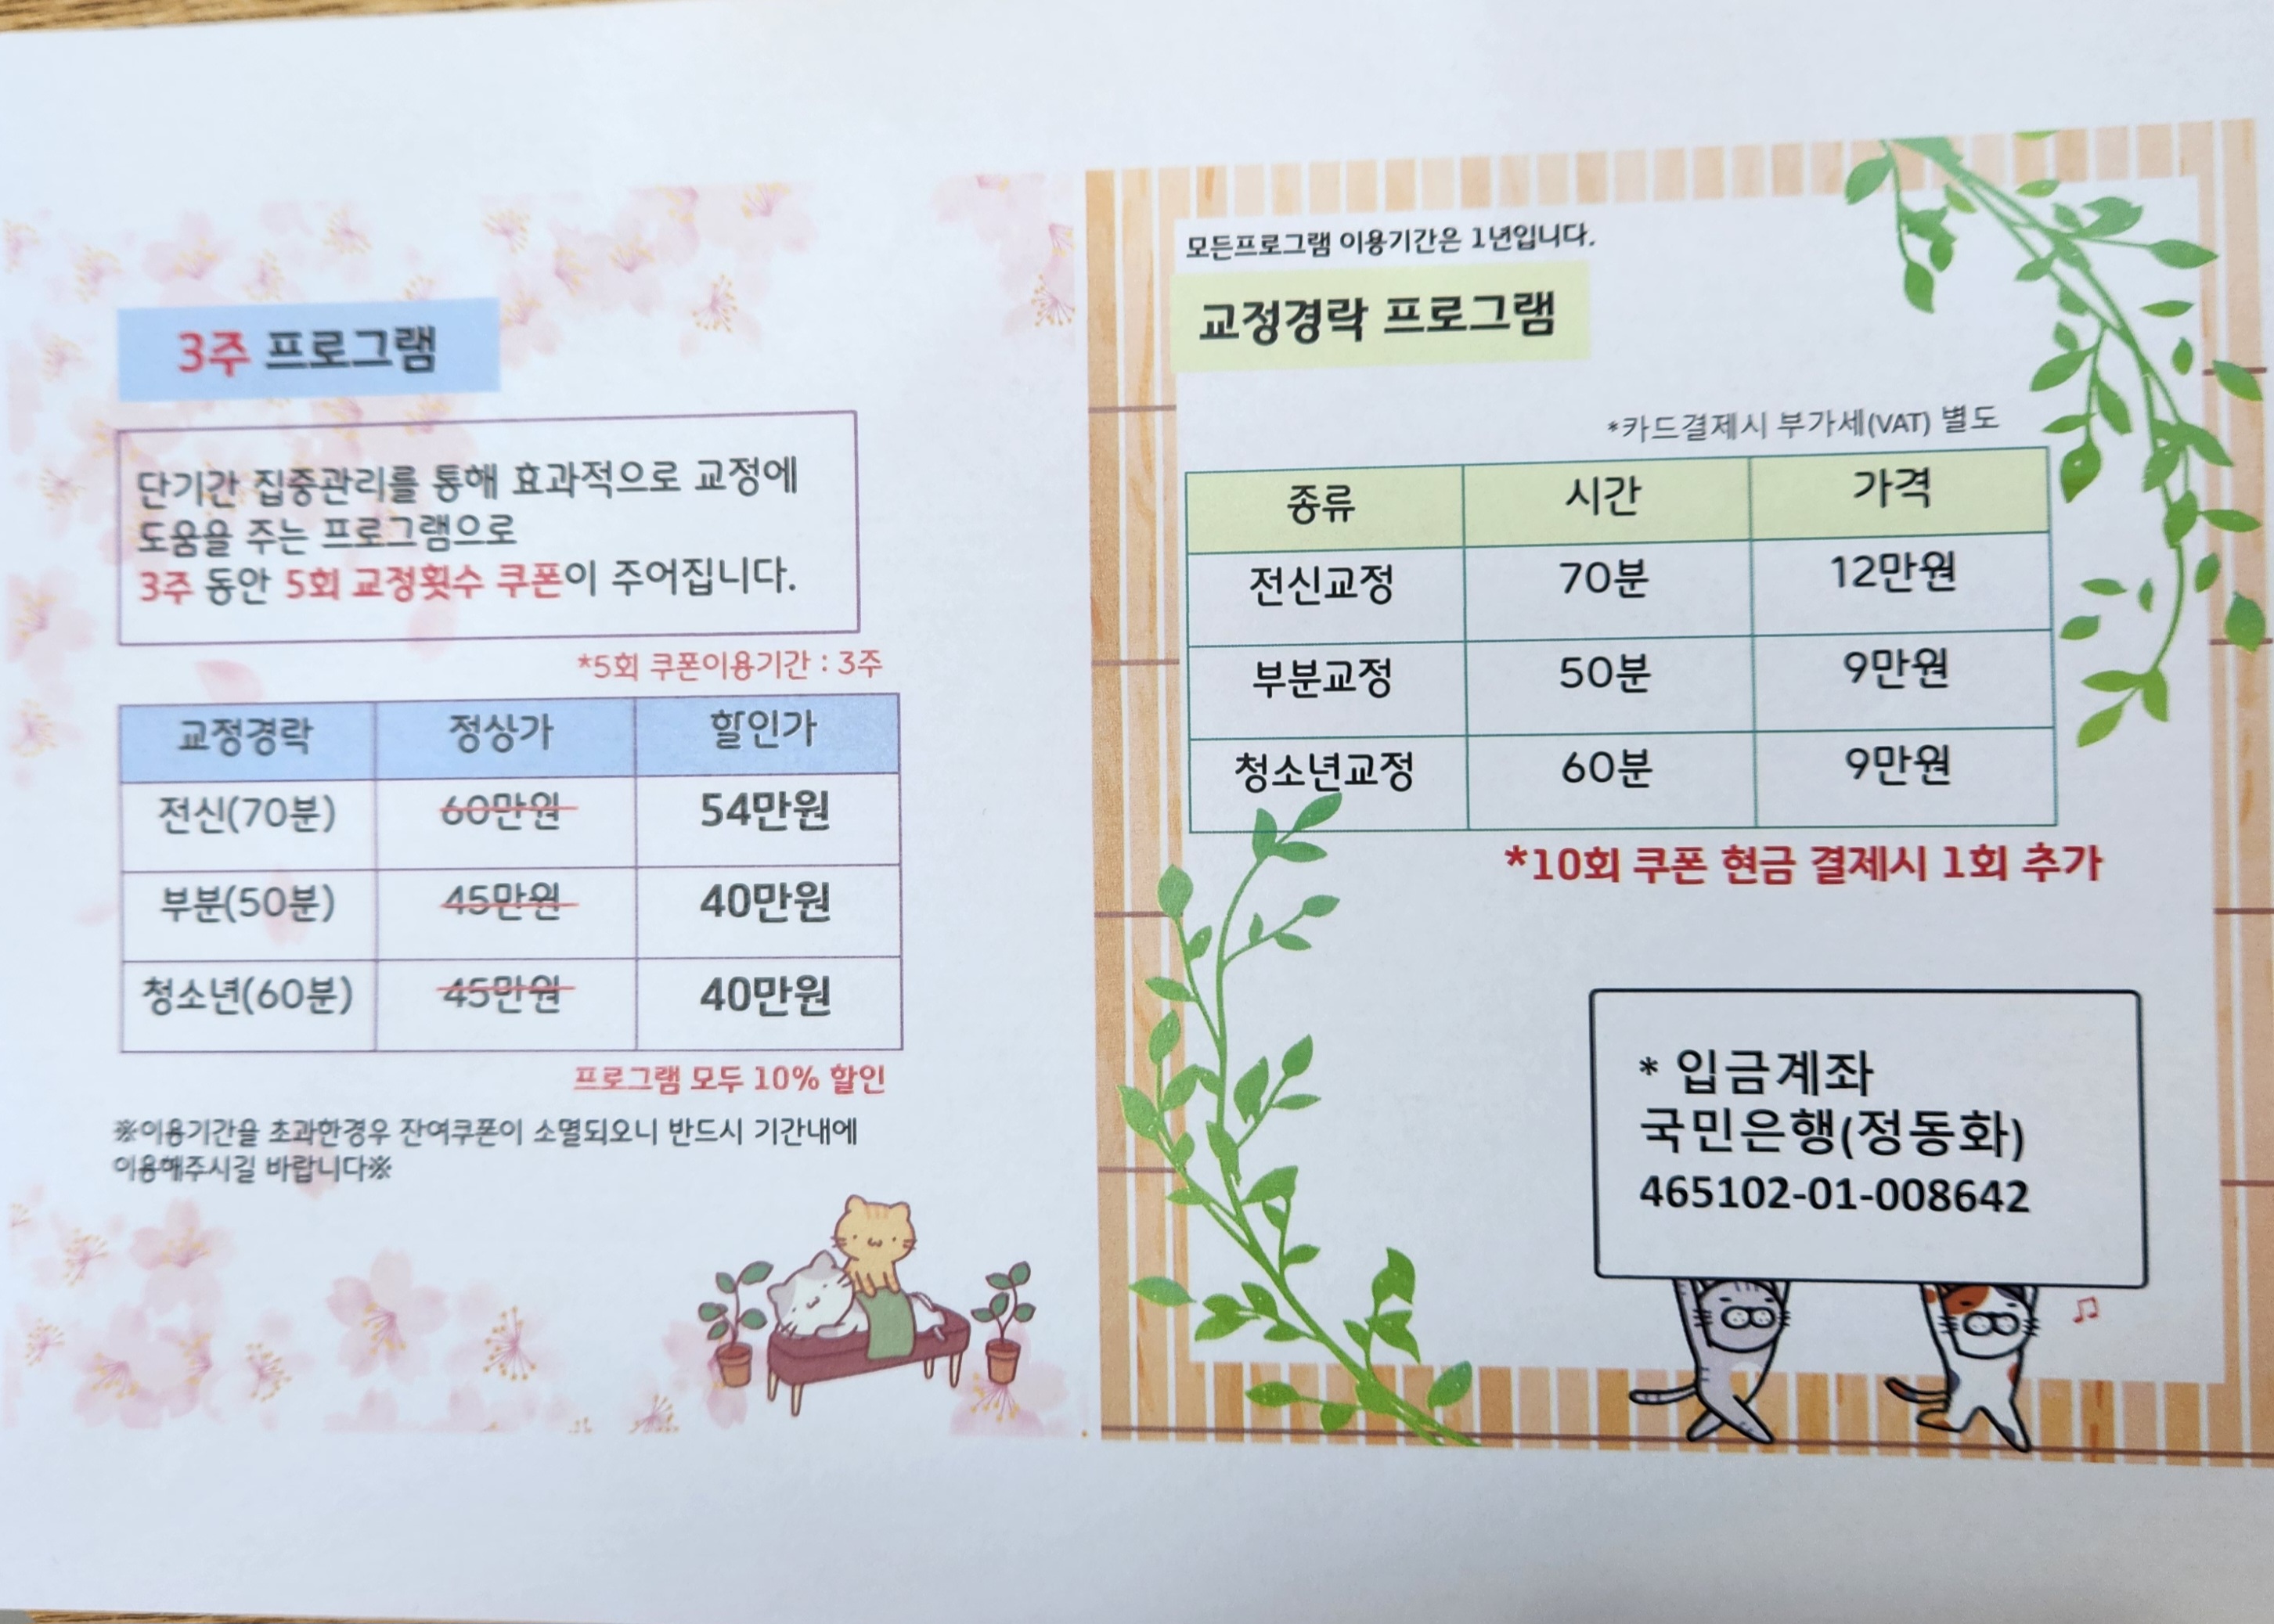 3주 프로그램
단기간 집중관리를 통해 효과적으로 교정에
도움을 주는 프로그램으로
3주 동안 5회 교정횟수 쿠폰이 주어집니다.
*5회 쿠폰이용기간 : 3주
교정경락 정상가 할인가
전신(70분) 60만원 54만원
부분(50분) 45만원 40만원
청소년(60분) 45만원 40만원
프로그램 모두 10% 할인
※이용기간을 초과한경우 잔여쿠폰이 소멸되오니 반드시 기간내에
이용해주시길 바랍니다※
모든프로그램 이용기간은 1년입니다.
교정경락 프로그램
*카드결제시 부가세(VAT) 별도
종류 시간 가격
전신교정 70분 12만원
부분교정 50분 9만원
청소년교정 60분 9만원
*10회 쿠폰 현금 결제시 1회 추가
* 입금계좌
국민은행(정동화)
465102-01-008642